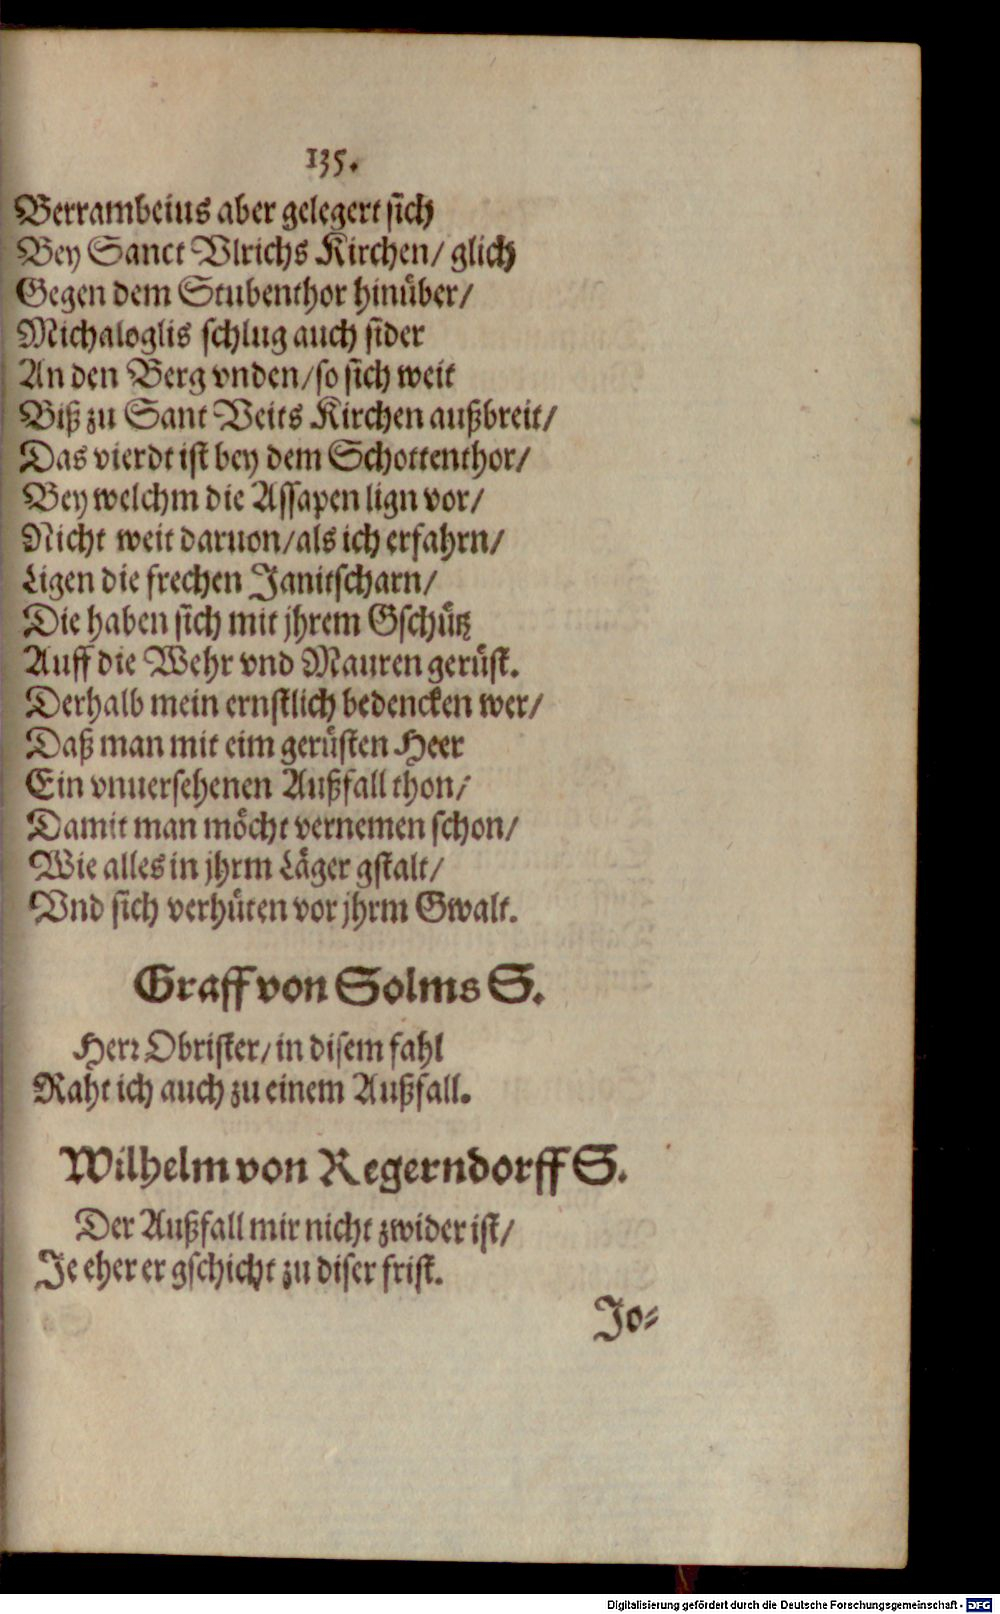 135.
Berrambeius aber gelegert sich
Bey Sanct Vlrichs Kirchen/ glich
Gegen dem Stubenthor hinüber/
Michaloglis schlug auch sider
An den Berg vnden/ so sich weit
Biß zu Sant Veits Kirchen außbreit/
Das vierdt ist bey dem Schottenthor/
Bey welchm die Assapen lign vor/
Nicht weit daruon/ als ich erfahrn/
Ligen die frechen Janitscharn/
Die haben sich mit jhrem Gschütz
Auff die Wehr vnd Mauren gerüst.
Derhalb mein ernstlich bedencken wer/
Daß man mit eim gerüsten Heer
Ein vnuersehenen Außfall thon/
Damit man möcht vernemen schon/
Wie alles in jhrm Läger gstalt/
Vnd sich verhüten vor jhrm Gwalt.
Graff von Solms S.
Herr Obrister/ in disem fahl
Raht ich auch zu einem Außfall.
Wilhelm von Regerndorff S.
Der Außfall mir nicht zwider ist/
Je eher er gschicht zu diser frist.
Jo-
Digitalisierung gefördert durch die Deutsche Forschungsgemeinschaft - DFG